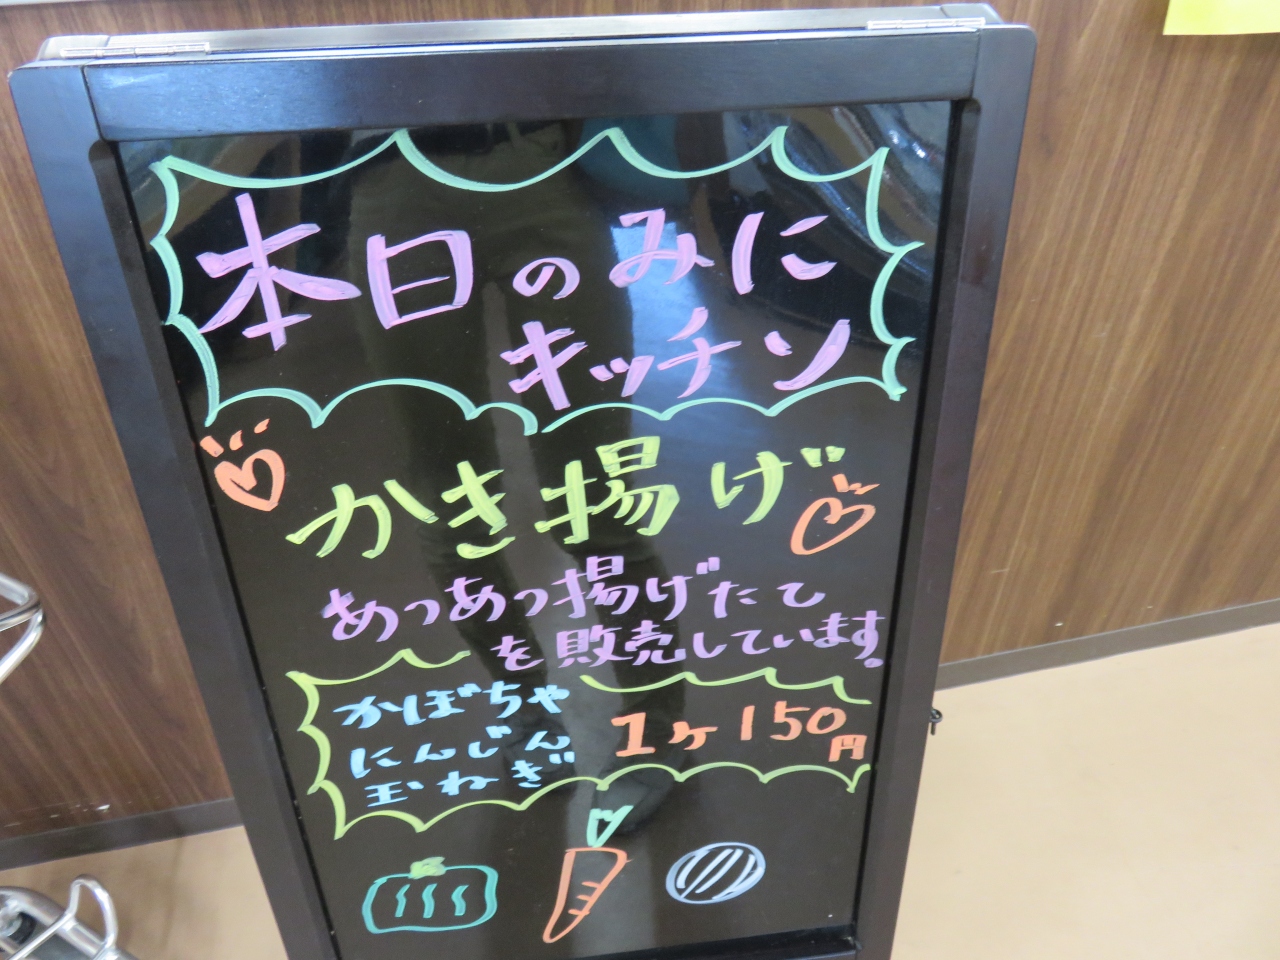 本日のみに
キッチン
かき揚げ
あつあつ揚げたて
を販売しています。
かぼちゃ
にんじん
玉ねぎ
1ヶ150円